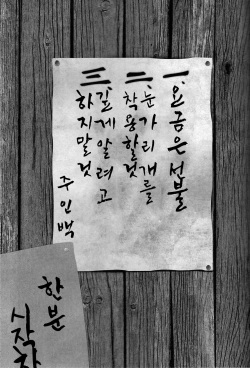 一. 요금은 선불
二. 눈가리개를
착용할것
三. 깊게알려고
하지말것
주인백
한분
시작